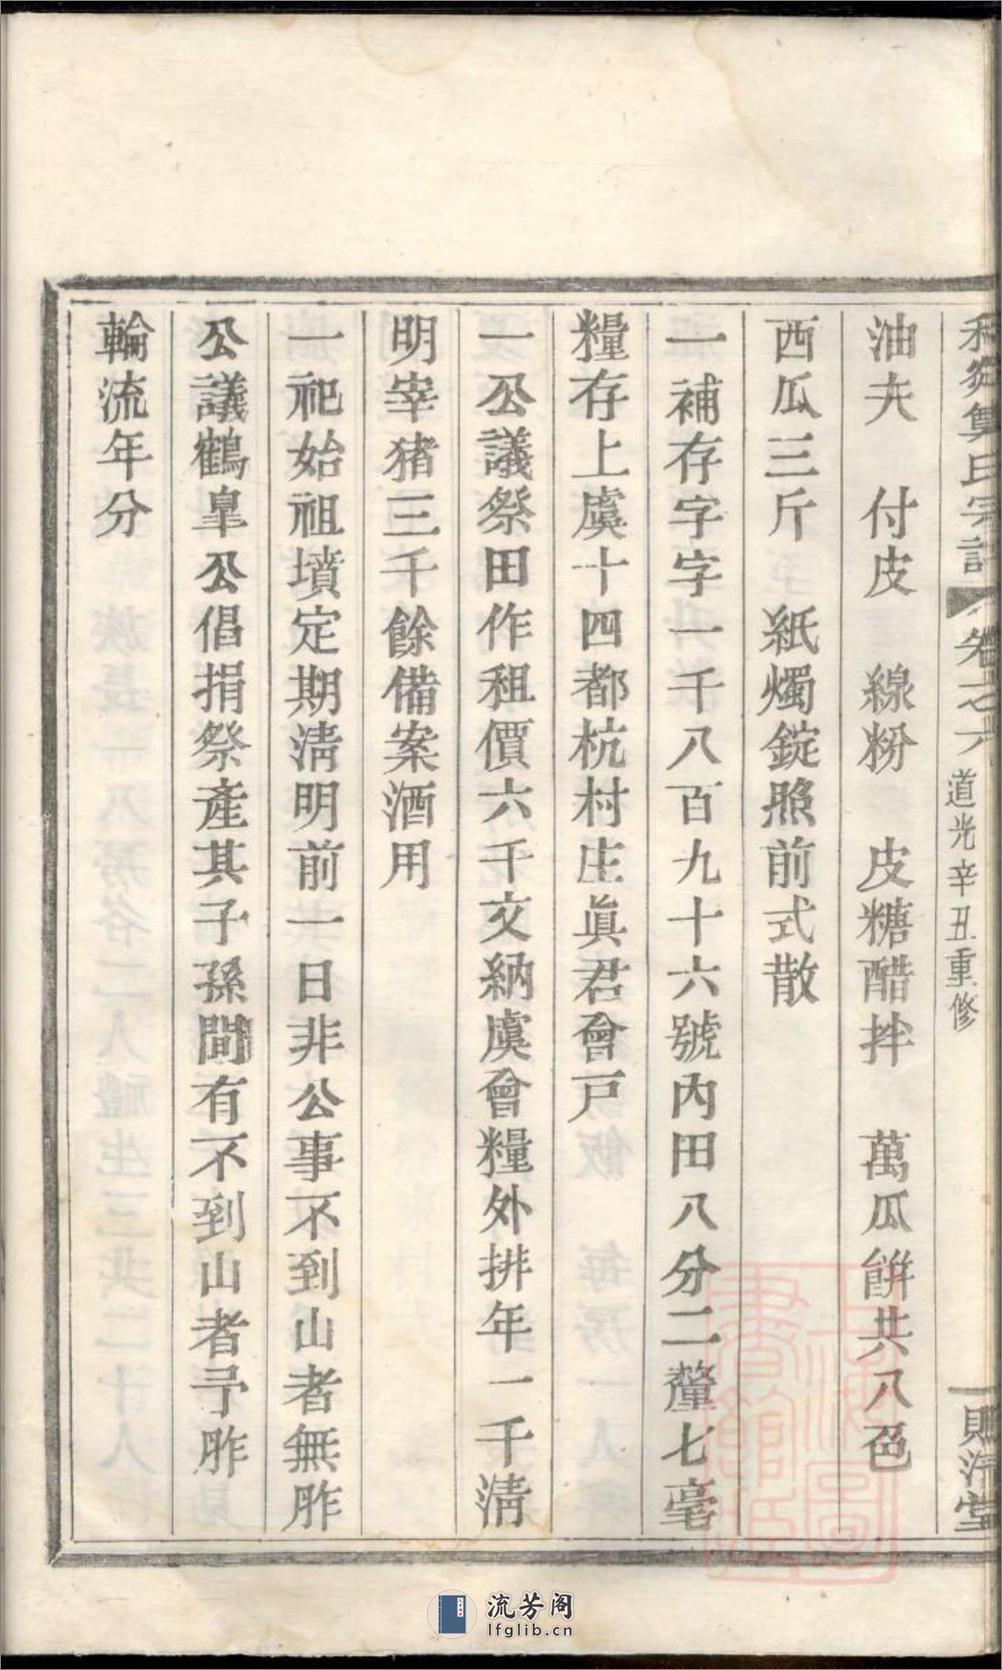 氏宗譜 卷之六 道光辛丑重修
油夾 付皮 線粉 皮糖醋拌 萬瓜餅共八色
西瓜三斤 紙燭錠照前式散
一補存字字一千八百九十六號內田八分二釐七毫
糧存上虞十四都杭村庄眞君會戸
一公議祭田作租價六千文納虞會糧外排年一千淸
明宰猪三千餘備案酒用
一祀始祖墳定期淸明前一日非公事不到山者無胙
公議鶴臯公倡捐祭產其子孫間有不到山者予胙
輪流年分
流芳阁
lfglib.cn